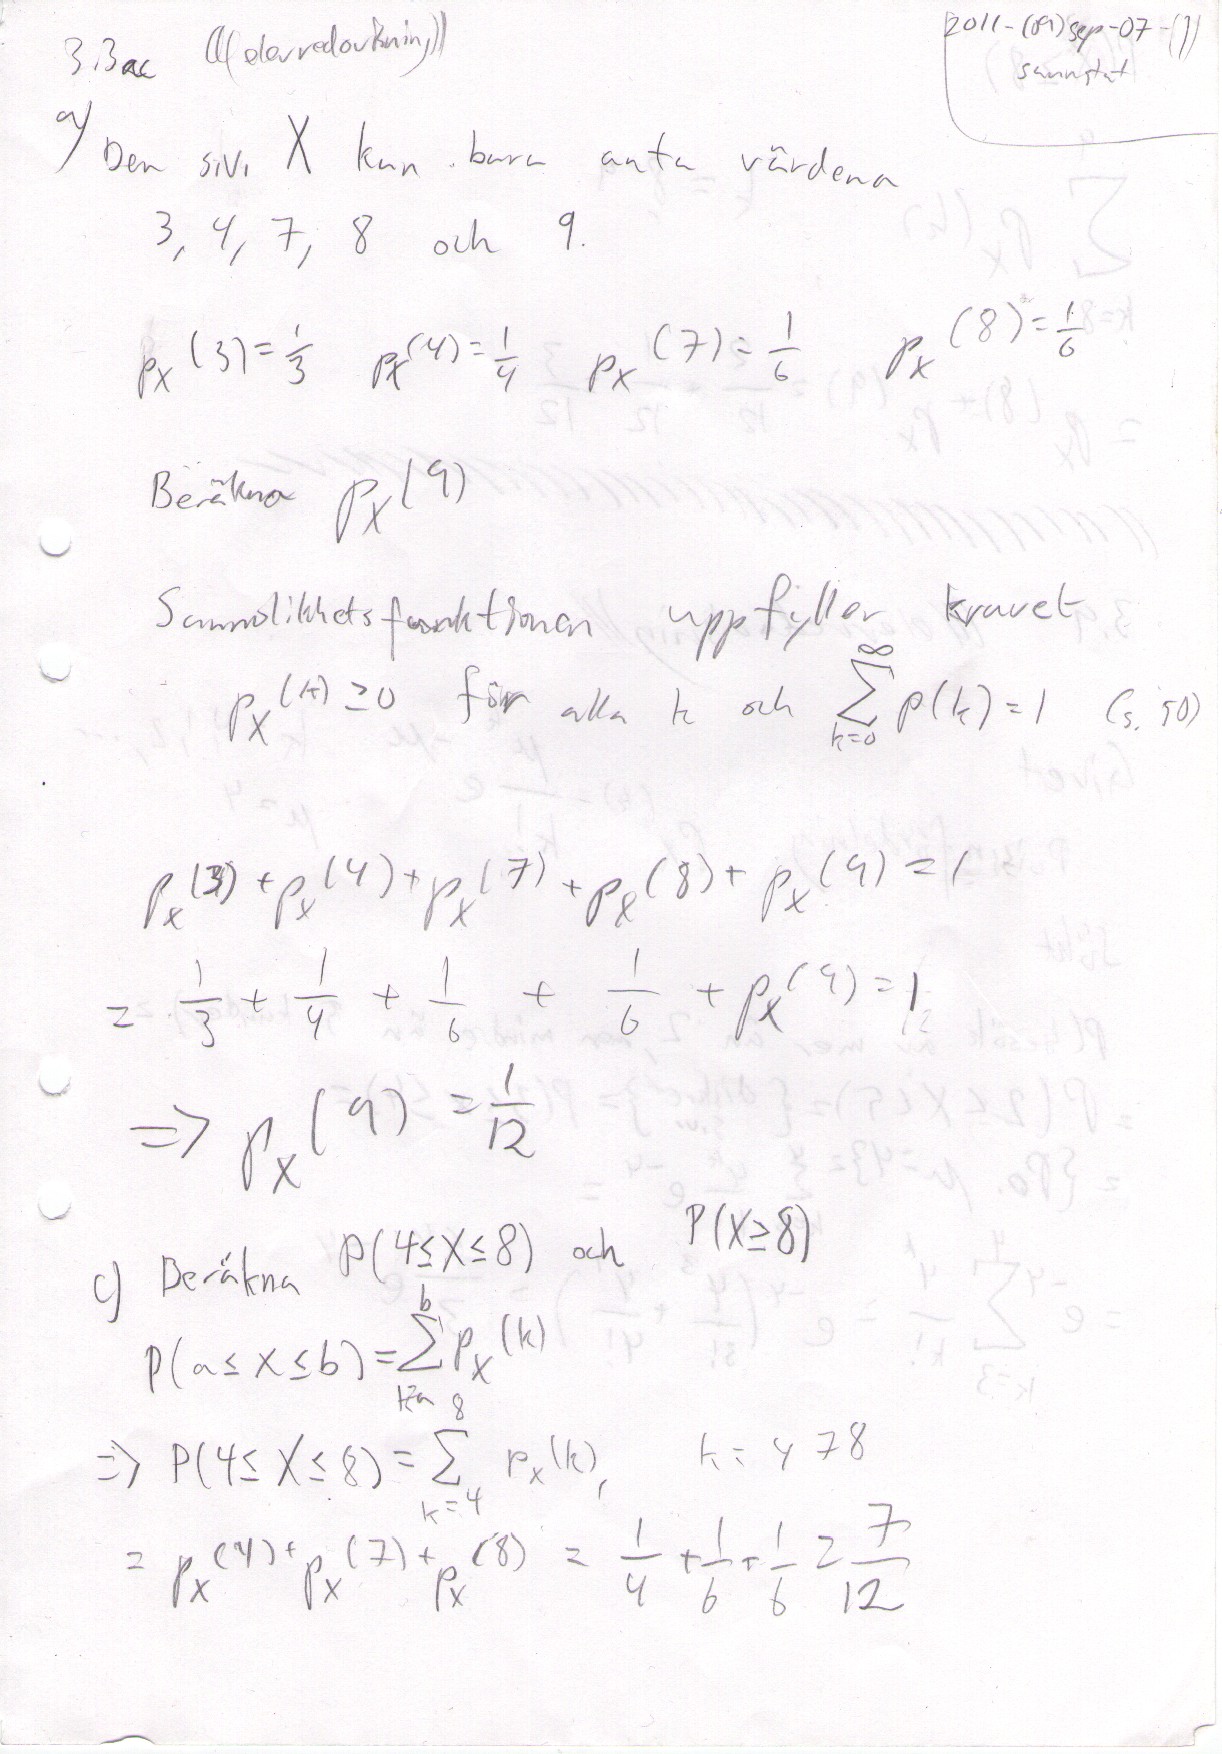 2011-(09)sep-07-(1)
sannstat
3.3ac (((elevredovisning)))
a) Den s.v. X kan bara anta värdena
3, 4, 7, 8 och 9.
p_X(3)=1/3 p_X(4)=1/4 p_X(7)=1/6 p_X(8)=1/6
Beräkna p_X(9)
Sannolikhetsfunktionen uppfyller kravet
p_X(k) ≥ 0 för alla k och ∑_{k=0}^{∞} p(k)=1 (s. 50)
p_X(3)+p_X(4)+p_X(7)+p_X(8)+p_X(9)=1
= 1/3 + 1/4 + 1/6 + 1/6 + p_X(9)=1
=> p_X(9) = 1/12
c) Beräkna P(4≤X≤8) och P(X≥8)
P(a≤X≤b)=∑_{k=a}^{b} p_X(k)
=> P(4≤X≤8)=∑_{k=4}^{8} p_X(k), k= 4 7 8
= p_X(4)+p_X(7)+p_X(8) = 1/4+1/6+1/6=7/12